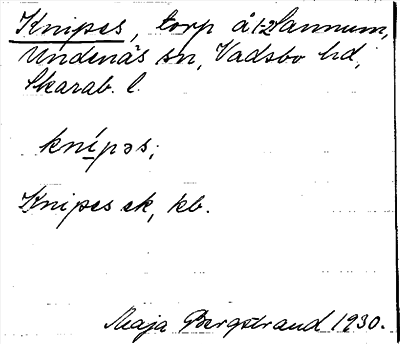 Knipes, torp å 1/2 Sannum,
Undenäs sn, Vadsbo hd,
Skarab. l.
knípəs;
Knipes ek, kb.
Maja Bergstrand 1930.